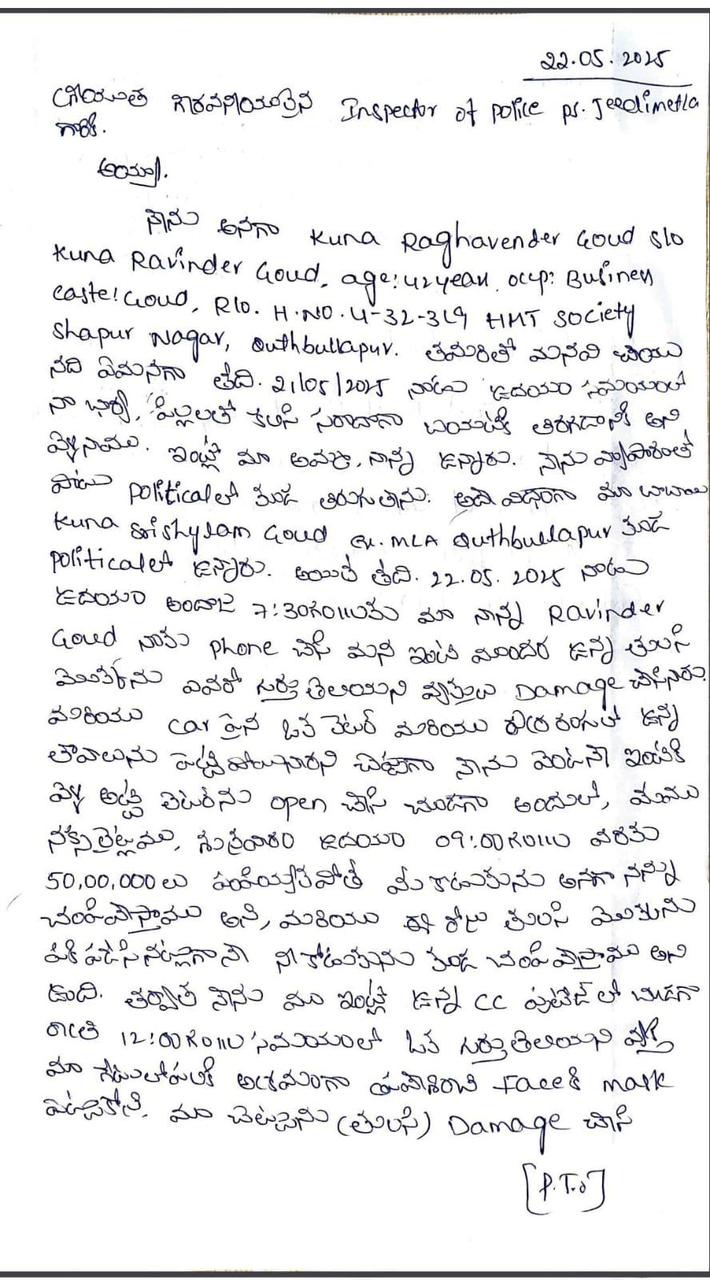 22.05.2025
శ్రీయుత గౌరవనీయులైన Inspector of police ps. Jeedimetla
గారికి.
అయ్యా.
నేను అనగా Kuna Raghavender Goud S/o
Kuna Ravinder Goud, age: 42 year, occp: Business
caste: Goud, R/o. H.NO. 4-32-319 HMT SOCIETY
Shapur Nagar, Quthbullapur. తమరితో మనవి చేయు
నది ఏమనగా తేది. 21/05/2025 నాడు ఉదయం సమయంలో
నా భార్య, పిల్లలతో కలిసి సరదాగా బయటకి తిరగడానికి అని
వెళ్ళినాము. ఇంట్లో మా అమ్మ, నాన్న ఉన్నారు. నేను వ్యాపారంతో
పాటు political లో కూడ తిరుగుతాను. అదే విధంగా మా బాబాయి
Kuna Srishylam Goud Ex. MLA Quthbullapur కూడ
political లో ఉన్నారు. అయితే తేది. 22.05.2025 నాడు
ఉదయం అందాజ 7:30గం॥లకు మా నాన్న Ravinder
Goud నాకు phone చేసి మన ఇంటి ముందర ఉన్న తులసి
మొక్కను ఎవరో గుర్తు తెలియని వ్యక్తులు Damage చేసినారు.
మరియు car పైన ఒక లెటర్ మరియు రంగులో ఉన్న
టావాలును పెట్టి పోయినారని చెప్పగా నేను వెంటనే ఇంటికి
వెళ్ళి అట్టి లెటర్‌ను open చేసి చూడగా అందులో, మేము
నక్సలైట్లము, శుక్రవారం ఉదయం 09:00గం॥ల వరకు
50,00,000లు పంపియ్యకపోతే మీ కొడుకును అనగా నన్ను
చంపివేస్తాము అని, మరియు ఈ రోజు తులసి మొక్కను
పీకి పడేసినట్లుగానే నీ కొడుకును కూడ చంపి వేస్తాము అని
ఉంది. తర్వాత నేను మా ఇంట్లో ఉన్న CC ఫుటేజ్ లో చూడగా
రాత్రి 12:00గం॥ల సమయంలో ఒక గుర్తుతెలియని వ్యక్తి
మా గేటులోపలికి అక్రమంగా ప్రవేశించి Faceకి mask
పెట్టుకొని, మా చెట్టును (తులసి) Damage చేసి
[P.T.O]